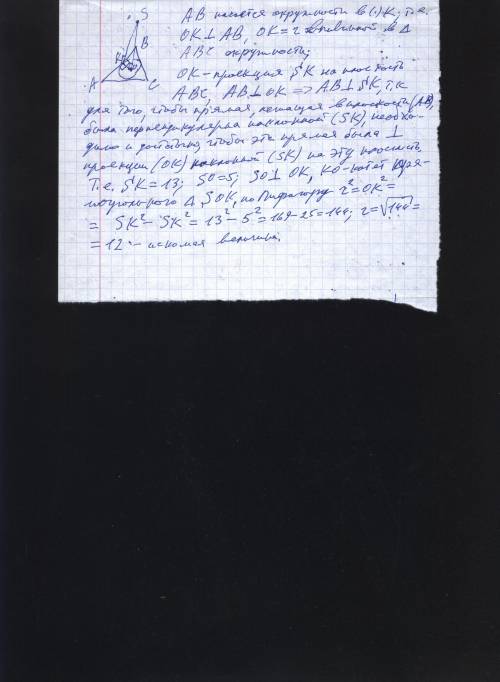 S
B
A
C
AB касается окружности в (·) K, т.е.
OK⊥AB, OK=r вписанной в Δ
ABC окружности;
OK - проекция SK на плоскость
ABC, AB⊥OK => AB⊥SK, т.к
для того, чтобы прямая, лежащая в плоскости (AB),
была перпендикулярна наклонной (SK), необхо-
димо и достаточно, чтобы эта прямая была ⊥
проекции (OK) наклонной (SK) на эту плоскость
Т.е. SK=13; SO=5; SO⊥OK, KO-катет пря-
моугольного Δ SOK, по Пифагору r²=OK²=
= SK²- SK²= 13²-5²=169-25=144; r=√144=
=12 - искомая величина.